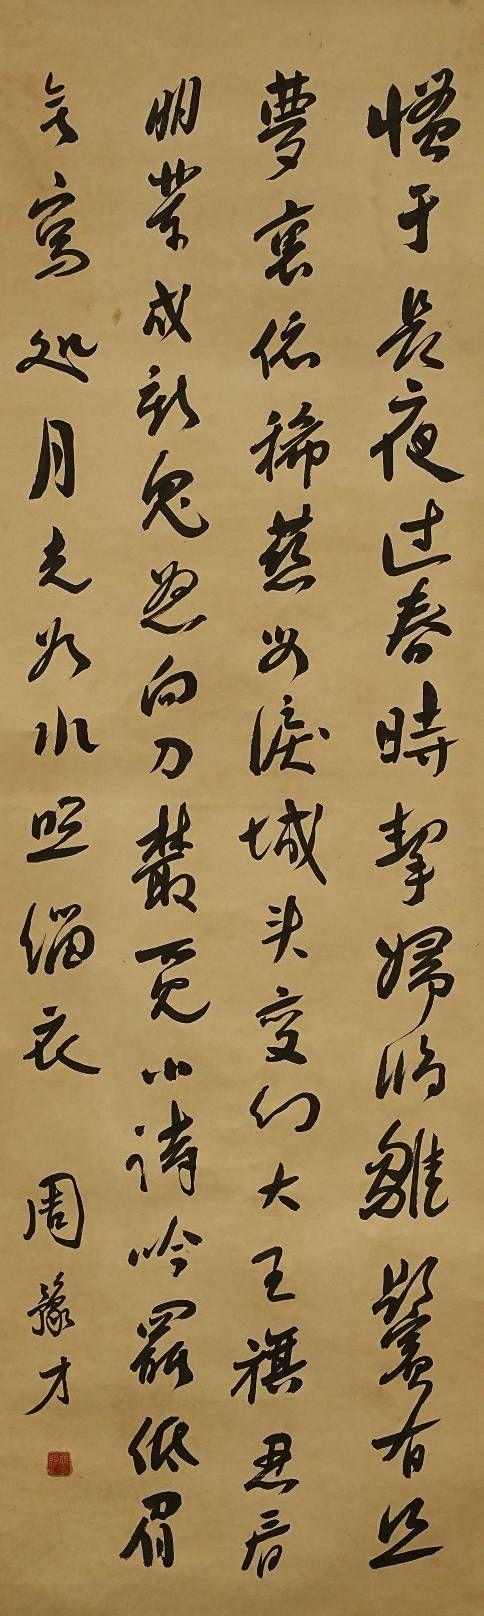 慣于長夜過春時挈婦將雛鬢有絲
夢裏依稀慈母淚城頭變幻大王旗忍看
朋輩成新鬼怒向刀叢覓小詩吟罷低眉
無寫処月光如水照緇衣 周豫才